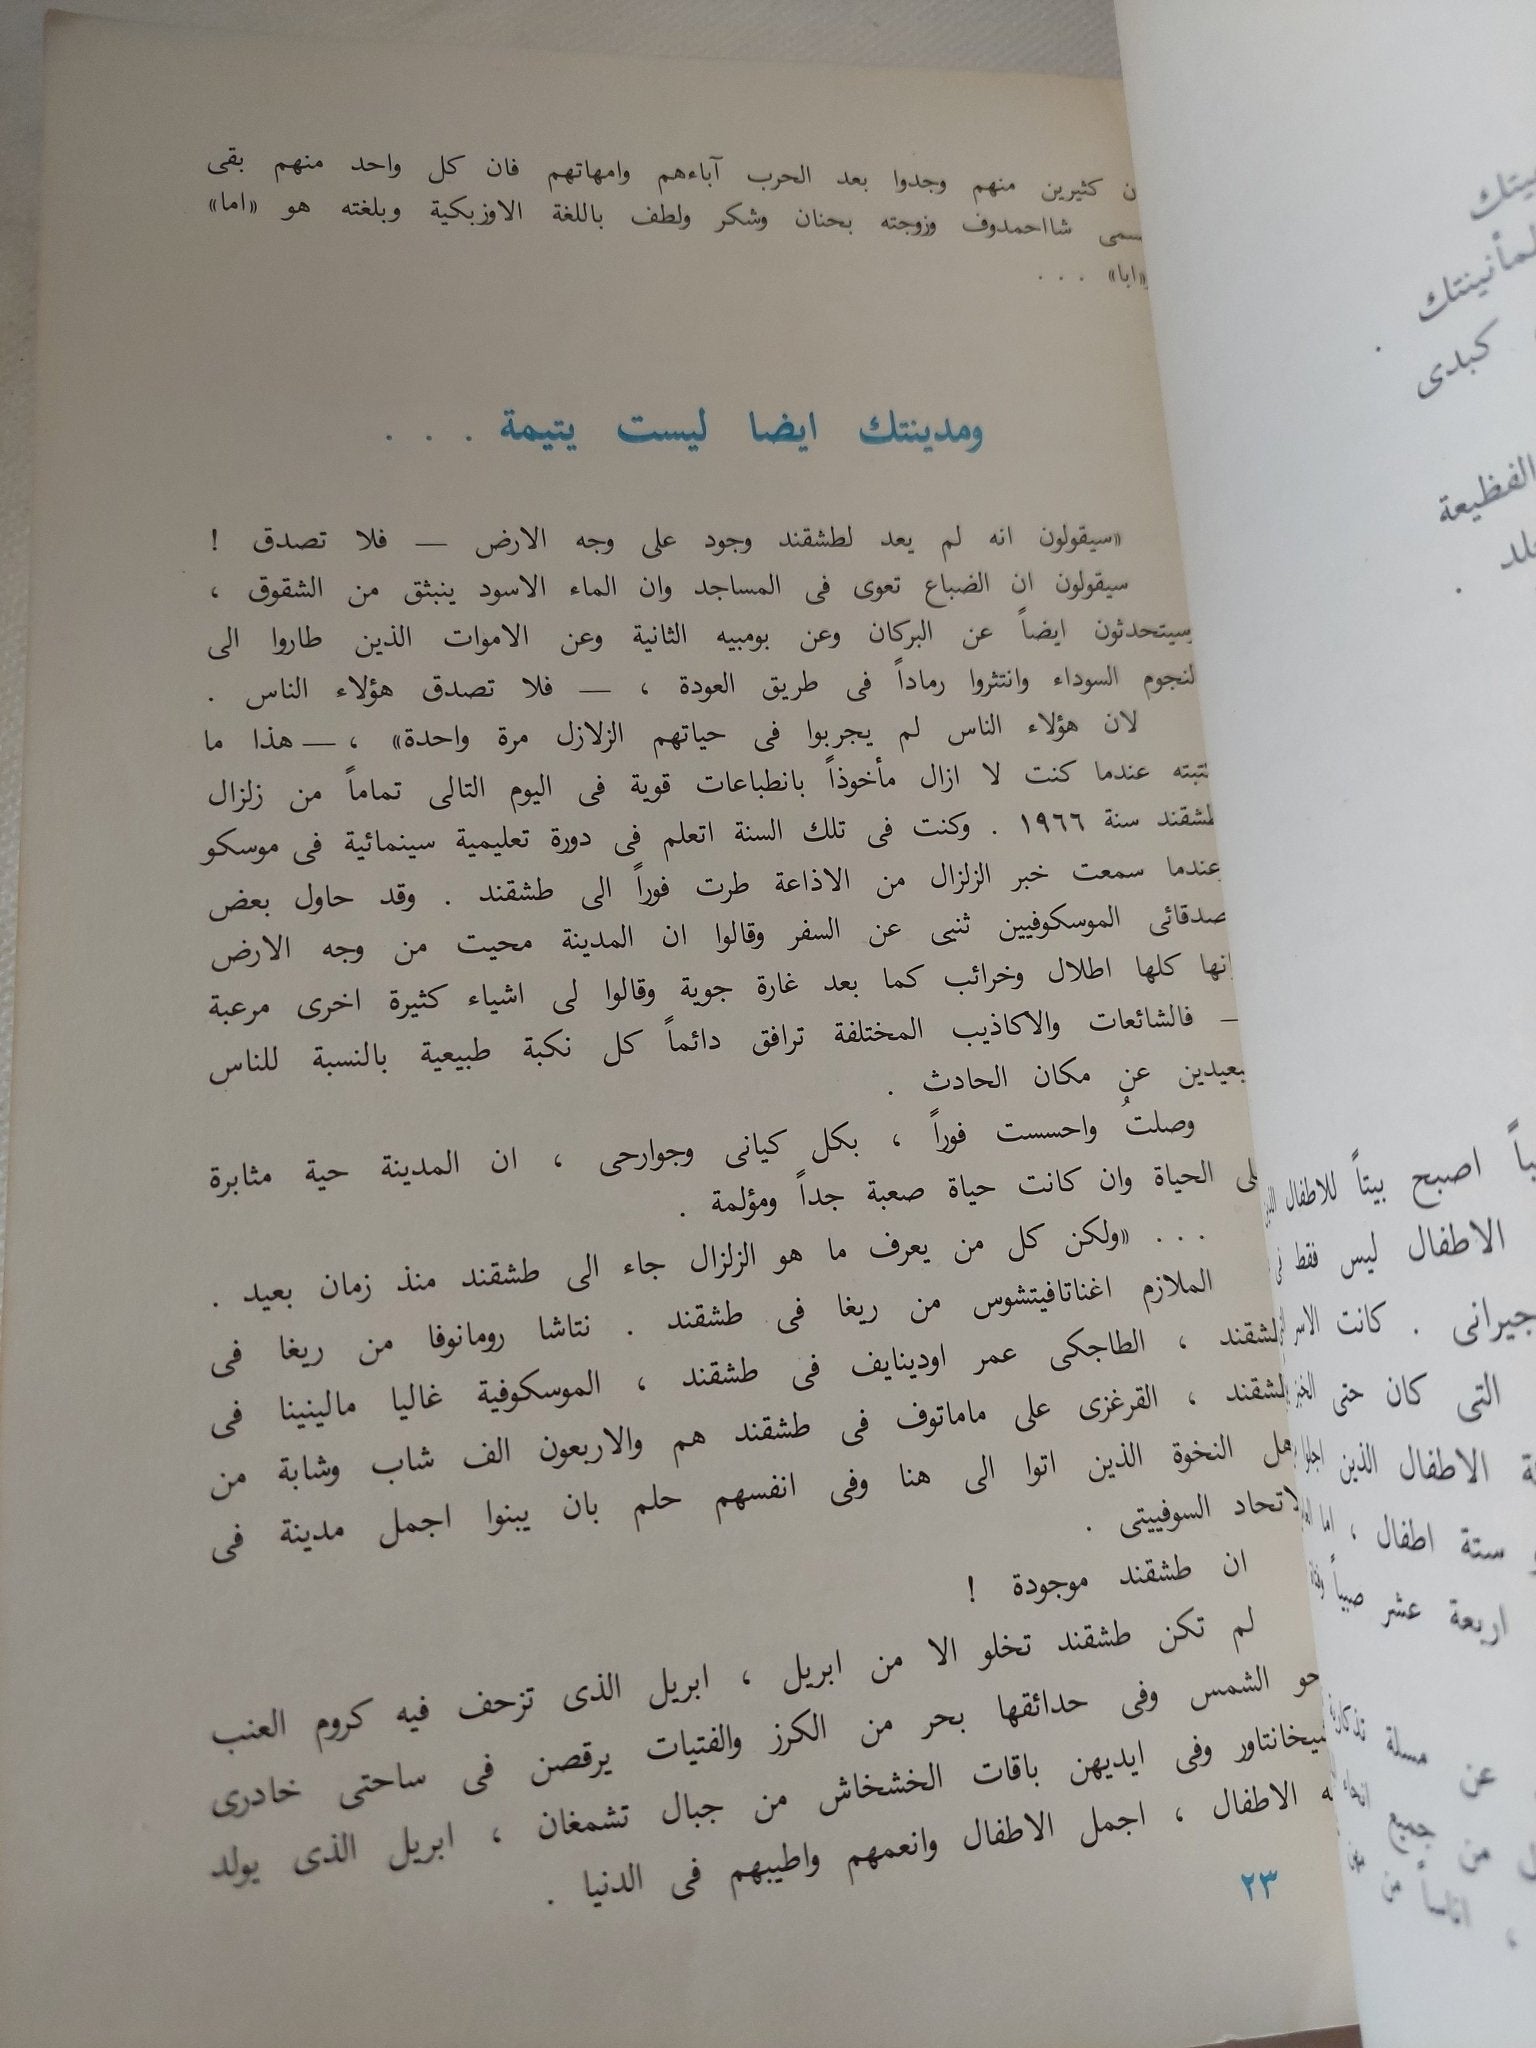 كثيرين منهم وجدوا بعد الحرب آباءهم وامهاتهم فان كل واحد منهم بقى
شااحمدوف وزوجته بحنان وشكر ولطف باللغة الاوزبكية وبلغته هو «اما»
«ابا» . . .
ومدينتك ايضا ليست يتيمة . . .
«سيقولون انه لم يعد لطشقند وجود على وجه الارض — فلا تصدق !
سيقولون ان الضباع تعوى فى المساجد وان الماء الاسود ينبثق من الشقوق ،
وسيتحدثون ايضاً عن البركان وعن بومبيه الثانية وعن الاموات الذين طاروا الى
النجوم السوداء وانتثروا رماداً فى طريق العودة ، — فلا تصدق هؤلاء الناس .
لان هؤلاء الناس لم يجربوا فى حياتهم الزلازل مرة واحدة» ، — هذا ما
عندما كنت لا ازال مأخوذاً بانطباعات قوية فى اليوم التالى تماماً من زلزال
طشقند سنة ١٩٦٦ . وكنت فى تلك السنة اتعلم فى دورة تعليمية سينمائية فى موسكو
وعندما سمعت خبر الزلزال من الاذاعة طرت فوراً الى طشقند . وقد حاول بعض
الموسكوفيين ثنيى عن السفر وقالوا ان المدينة محيت من وجه الارض
كلها اطلال وخرائب كما بعد غارة جوية وقالوا لى اشياء كثيرة اخرى مرعبة
— فالشائعات والاكاذيب المختلفة ترافق دائماً كل نكبة طبيعية بالنسبة للناس
عن مكان الحادث .
وصلتُ واحسست فوراً ، بكل كيانى وجوارحى ، ان المدينة حية مثابرة
الحياة وان كانت حياة صعبة جداً ومؤلمة .
. . . «ولكن كل من يعرف ما هو الزلزال جاء الى طشقند منذ زمان بعيد .
الملازم اغناتافيتشوس من ريغا فى طشقند . نتاشا رومانوفا من ريغا فى
طشقند ، الطاجكى عمر اودينايف فى طشقند ، الموسكوفية غاليا مالينينا فى
طشقند ، القرغزى على ماماتوف فى طشقند هم والاربعون الف شاب وشابة من
النخوة الذين اتوا الى هنا وفى انفسهم حلم بان يبنوا اجمل مدينة فى
السوفييتى .
ان طشقند موجودة !
لم تكن طشقند تخلو الا من ابريل ، ابريل الذى تزحف فيه كروم العنب
الشمس وفى حدائقها بحر من الكرز والفتيات يرقصن فى ساحتى خادرى
وفى ايديهن باقات الخشخاش من جبال تشمغان ، ابريل الذى يولد
الاطفال ، اجمل الاطفال وانعمهم واطيبهم فى الدنيا .
٢٣
كبدى
الفظيعة
اصبح بيتاً للاطفال
الاطفال ليس فقط فى
جيرانى . كانت الاسر
التى كان حتى
الاطفال الذين
ستة اطفال ، اما
اربعة عشر صبياً
عن مسلة
من جميع